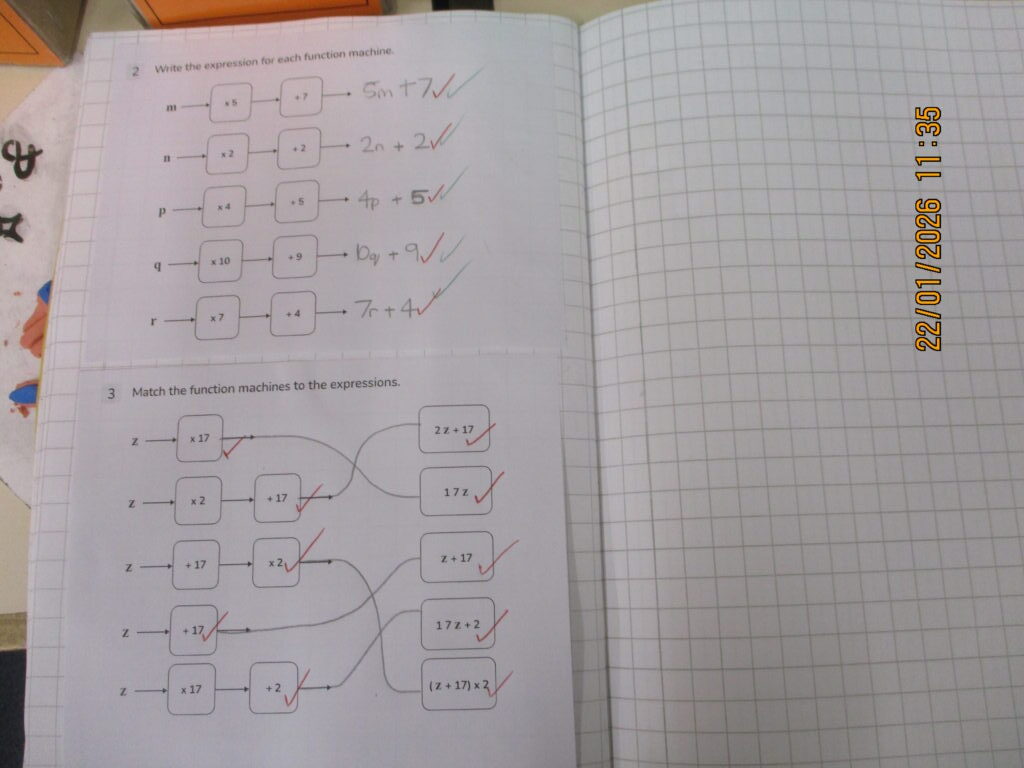 2 Write the expression for each function machine.
m x 5 + 7 5m + 7
n x 2 + 2 2n + 2
p x 4 + 5 4p + 5
q x 10 + 9 10q + 9
r x 7 + 4 7r + 4
3 Match the function machines to the expressions.
z x 17 2 z + 17
z x 2 + 17 1 7 z
z + 17 x 2 z + 17
z + 17 1 7 z + 2
z x 17 + 2 ( z + 17) x 2
22/01/2026 11:35